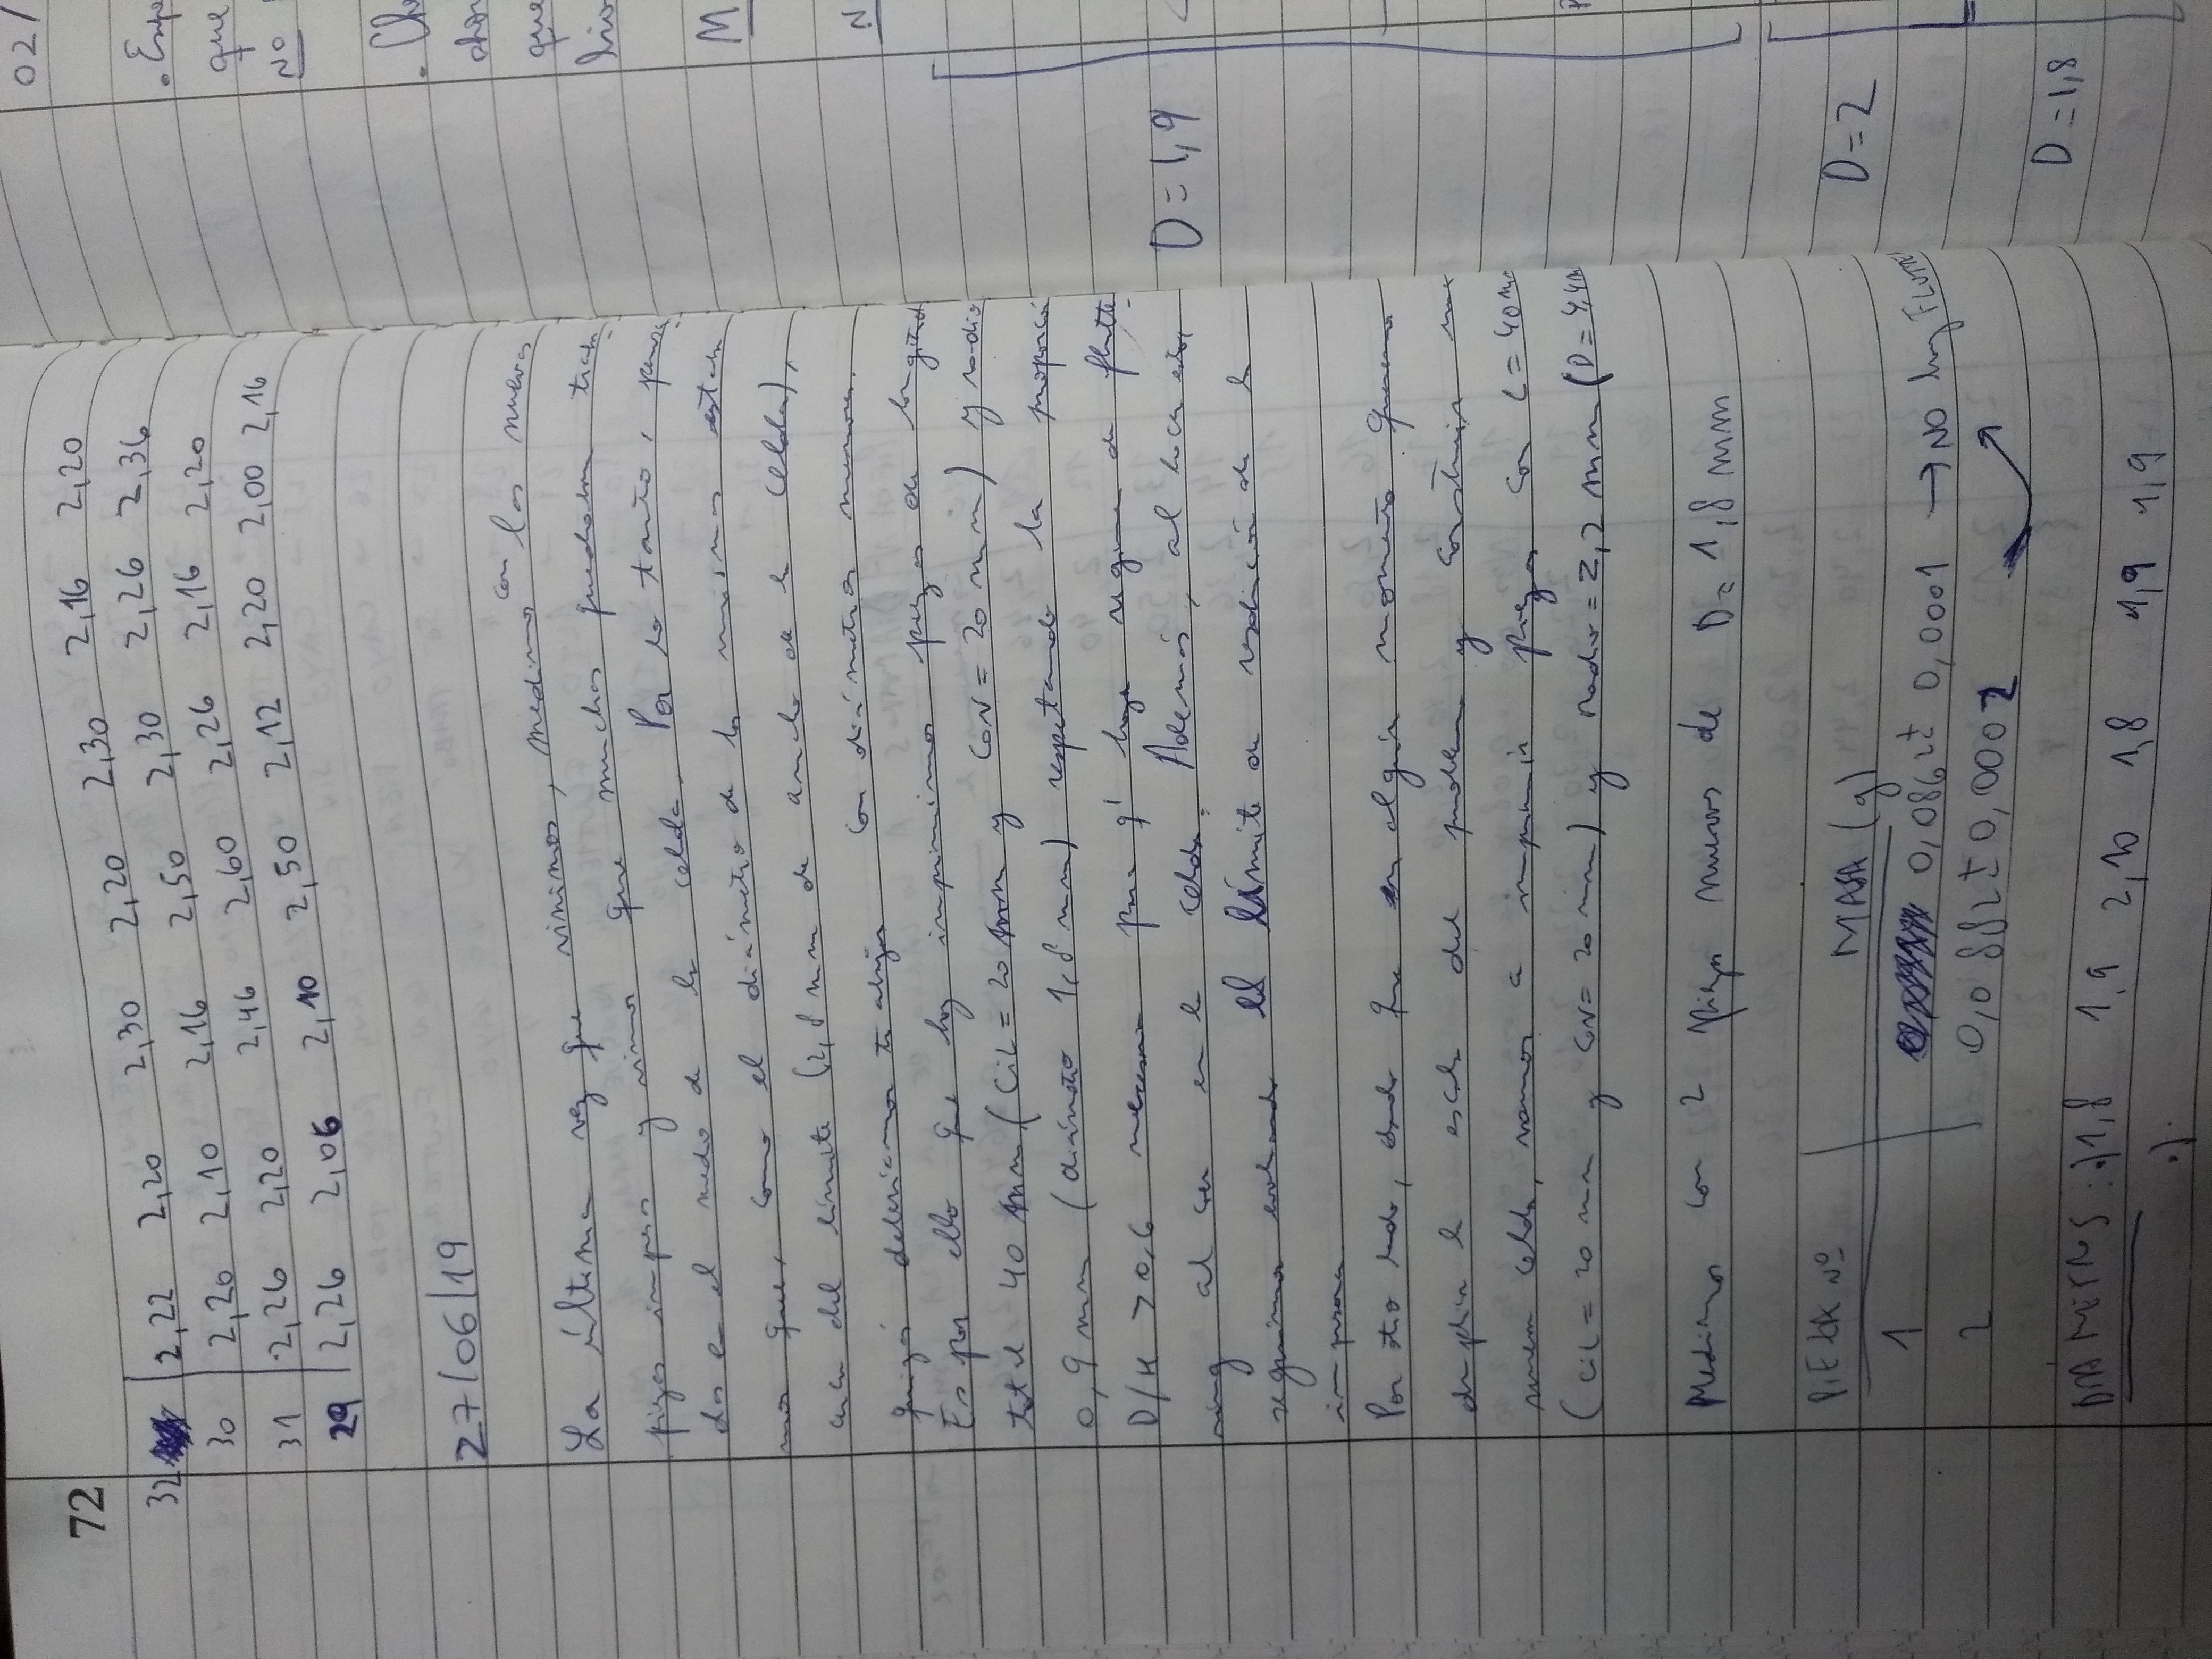 72
32 2,22 2,20 2,30 2,20 2,30 2,16 2,20
30 2,20 2,10 2,16 2,50 2,30 2,26 2,36
31 2,26 2,20 2,46 2,60 2,26 2,16 2,20
29 2,26 2,06 2,10 2,50 2,12 2,20 2,00 2,16
27/06/19
con las nuevas
La última vez que vinimos, medimos
piezas impresas y vimos que muchas quedaban traba-
das en el medio de la celda. Por lo tanto,
mo que, como el diámetro de las mismas estaba
cerca del límite (2,8 mm de ancho de la celda),
quizás deberíamos trabajar con diámetros menores.
Es por ello que hoy imprimimos piezas de longitud
total 40 mm (CIL = 20 mm y CON = 20 mm) y radio
0,9 mm (diámetro 1,8 mm) respetando la proporció
D/H > 0,6 necesaria para q' haya régimen de flutte-
ring al caer en la celda. Además, al hacer esto,
seguimos evaluando el límite de resolución de la
impresora.
Por otro lado, dado que en algún momento queremos
ampliar la escala del problema y construir una
nueva celda, vamos a imprimir piezas con L = 40 mm
(CIL = 20 mm y CON = 20 mm) y radio = 2,2 mm (D = 4,4 m
Medimos con 2 piezas nuevas de D = 1,8 mm
PIEZA Nº MASA (g)
1 0,0862 ± 0,0001 → NO hay FLUTTE
2 0,0882 ± 0,0002
DIAMETROS: 1) 1,8 1,9 2,10 1,8 1,9 1,9
2)
02/
. Exp
que
NO
. Cha
que
M
N
D = 1,9
D = 2
D = 1,8